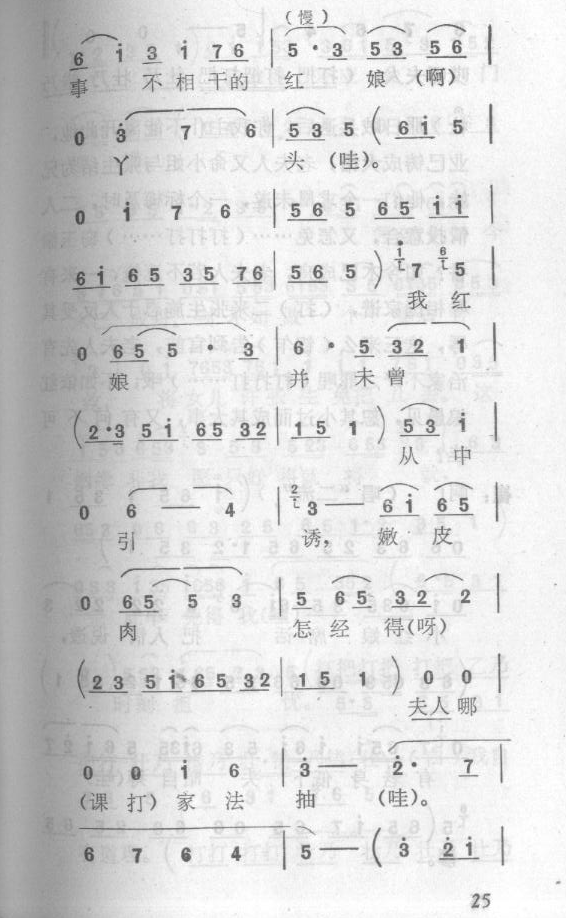 (慢)
6 i 3 i 7 6 | 5 · 3 5 3 5 6 |
事 不相干的 红 娘 (啊)
0 3 7 6 | 5 3 5 ( 6 i 5 |
丫 头 (哇)。
0 i 7 6 | 5 6 5 6 5 i i |
6 i 6 5 3 5 7 6 | 5 6 5 ) i 7 6 5 |
我 红
0 6 5 5 · 3 | 6 · 5 3 2 |
娘 并 未 曾
( 2 · 3 5 i 6 5 3 2 | 1 5 1 ) 5 3 i |
从 中
0 6 — 4 | 2 3 — 6 i 6 5 |
引 诱, 嫩 皮
0 6 5 5 3 | 5 6 5 3 2 2 |
肉 怎 经 得 (呀)
( 2 3 5 i 6 5 3 2 | 1 5 1 ) 0 0 |
夫人 哪
0 0 i 6 | 3 — 2 · 7 |
(课 打) 家 法 抽 (哇)。
6 7 6 4 | 5 — ( 3 2 i |
25